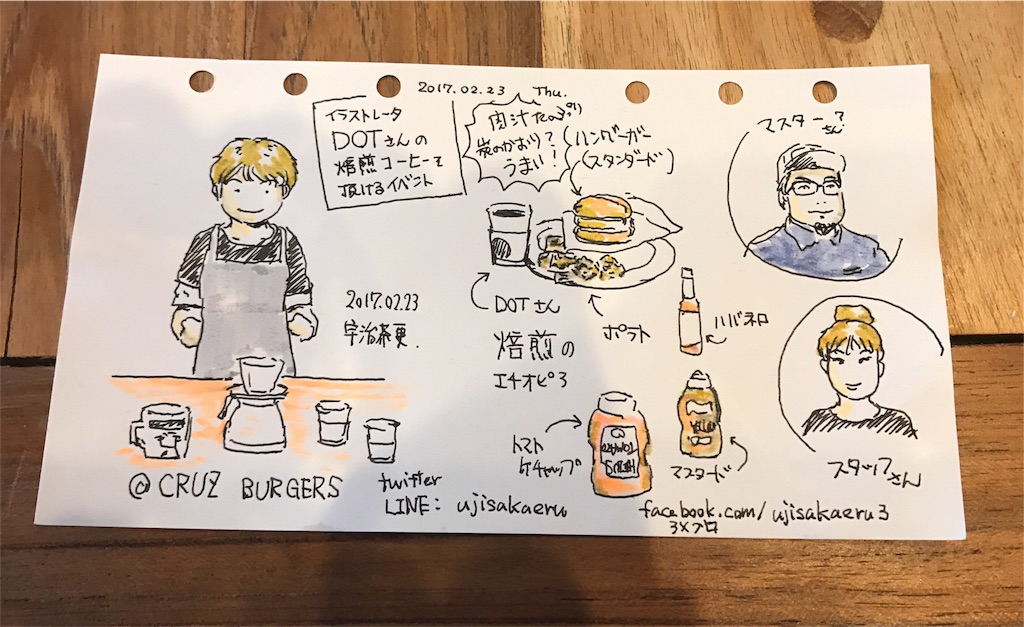 2017.02.23 Thu.
イラストレータ
DOTさんの
焙煎コーヒーを
頂けるイベント
肉汁たっぷり
炭のかおり?
うまい!
ハンバーガー
(スタンダード)
マスター?
さん
2017.02.23
宇治茶更.
DOTさん
焙煎の
エチオピア
ポテト
ハバネロ
トマト
ケチャップ
TOMATO
マスタード
スタッフさん
@CRUZ BURGERS
twitter
LINE: ujisakaeru
facebook.com/ujisakaeru3